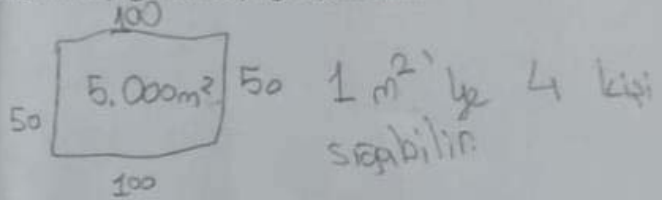 100
50 5.000m² 50
100
1 m²'ye 4 kişi
sığabilir.